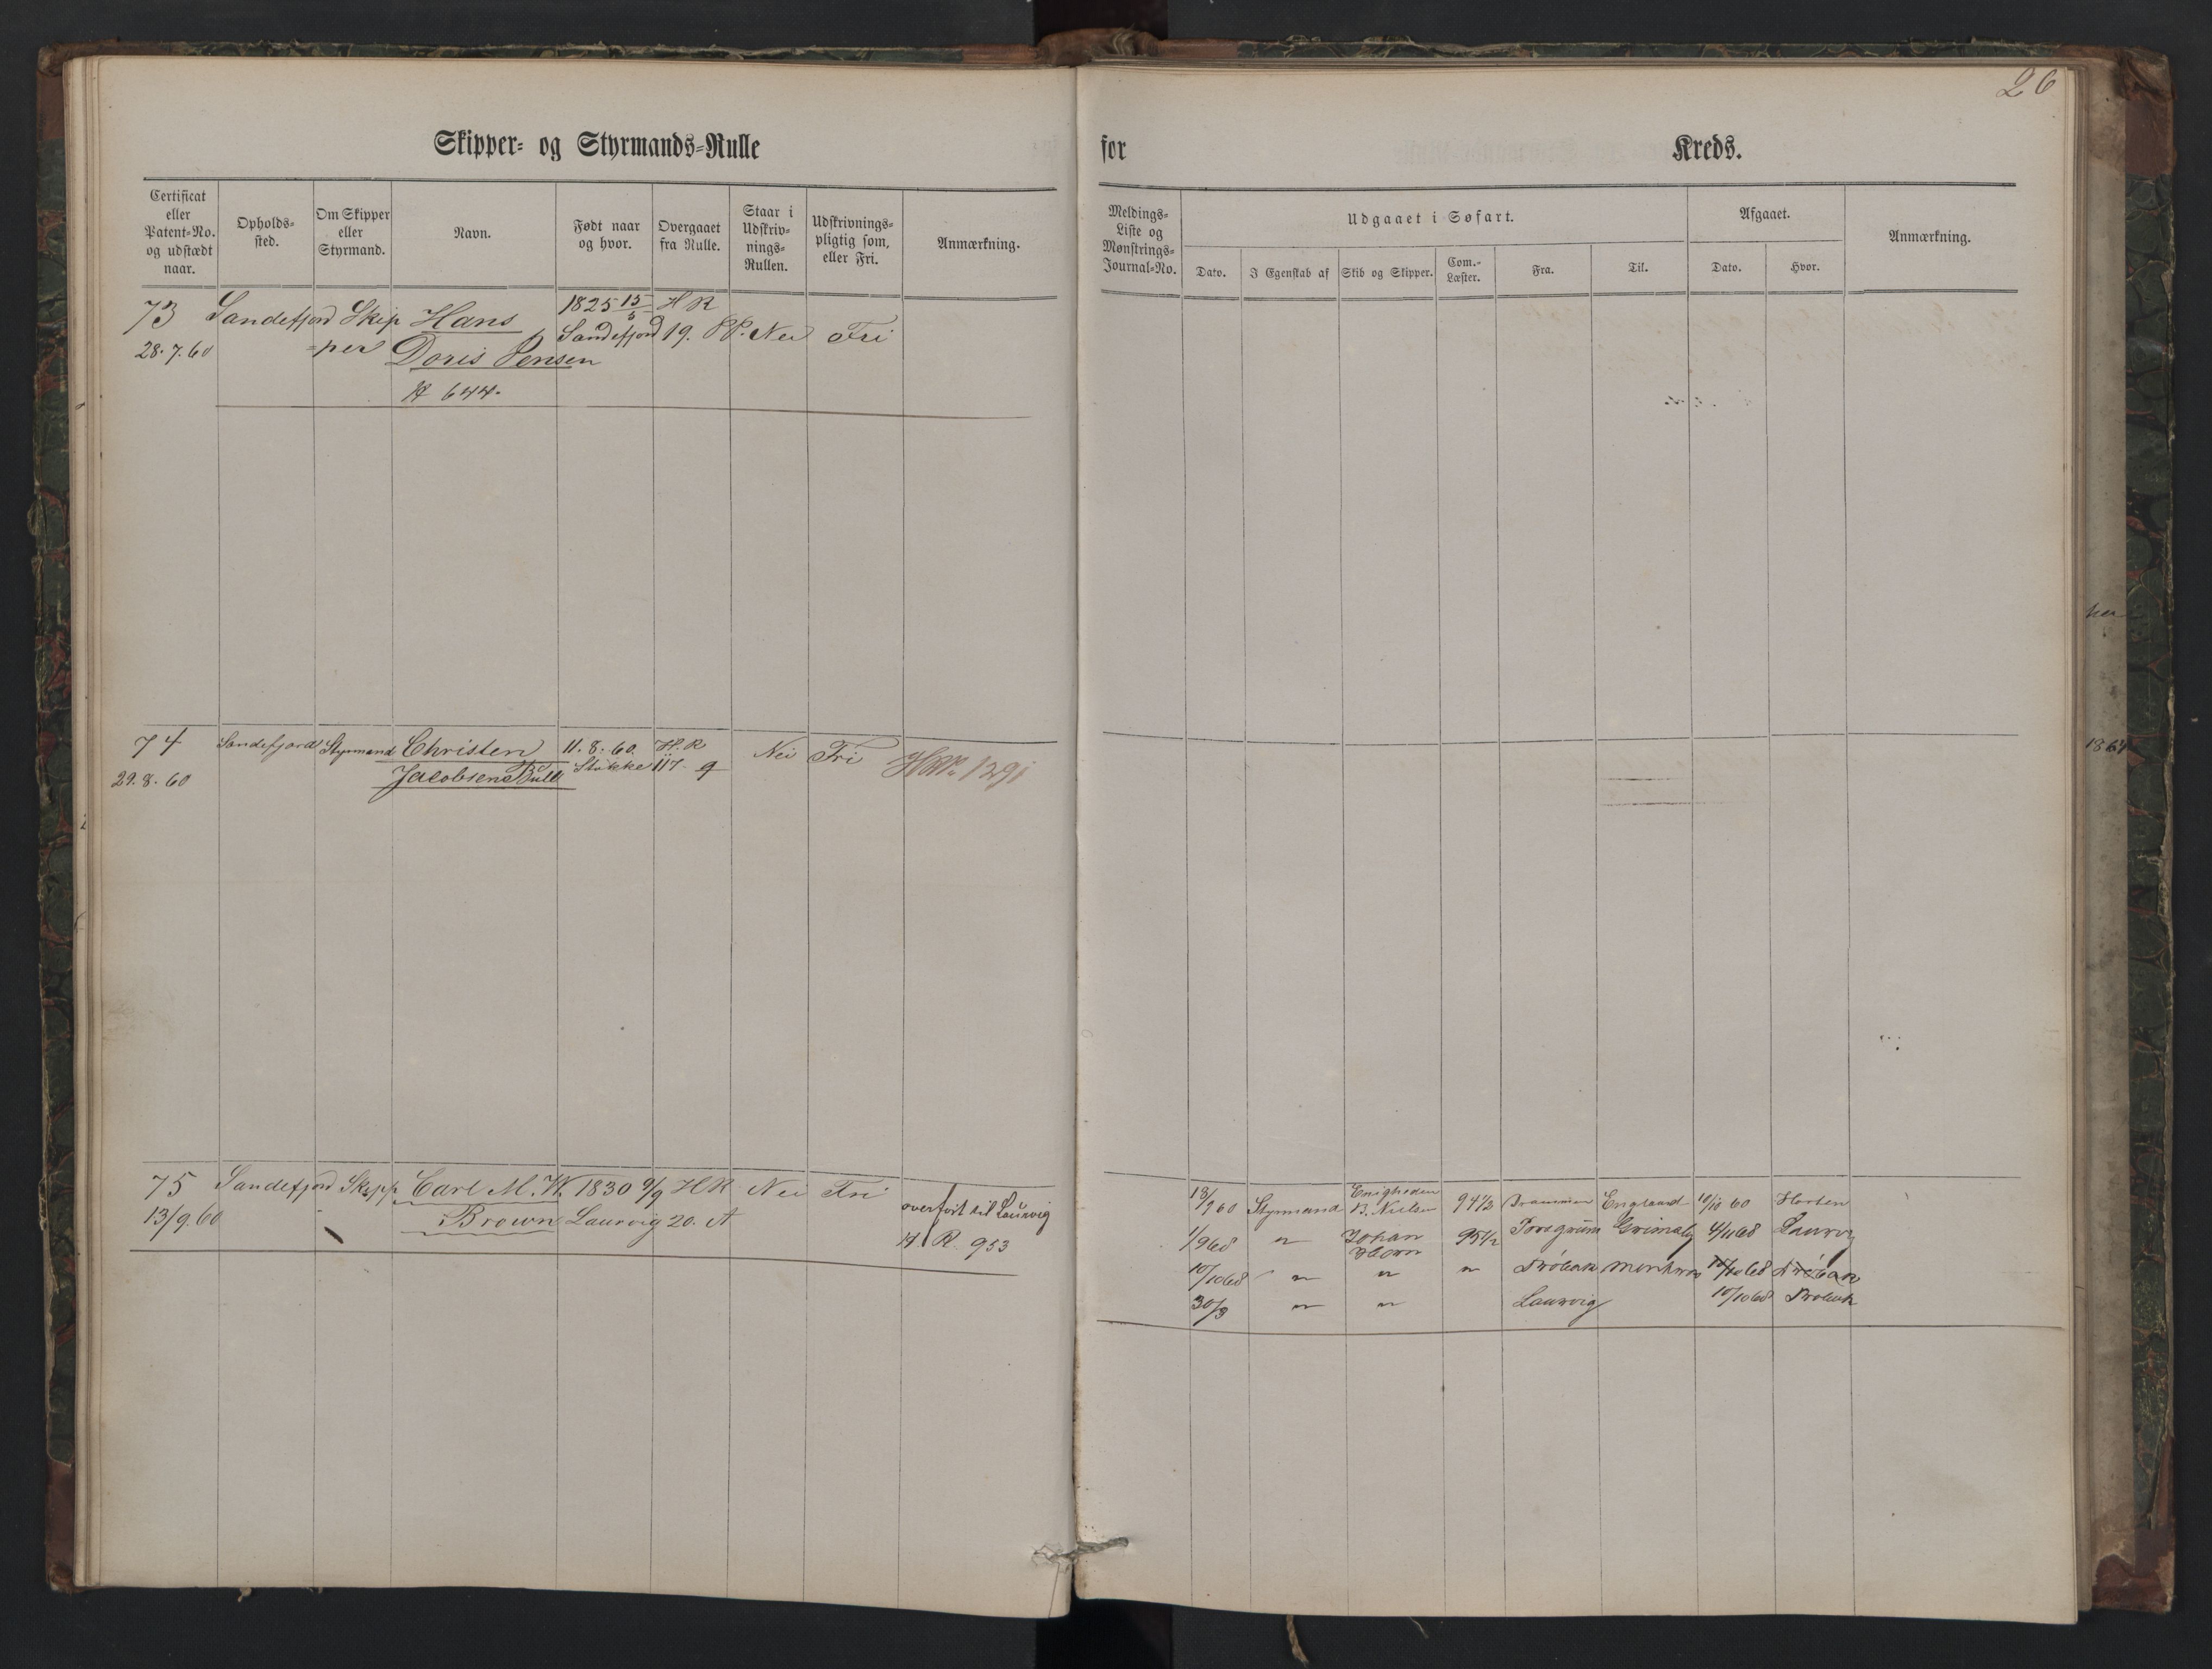 26
Skipper- og Styrmands-Rulle
for Kreds.
Certificat eller Patent-No. og udstædt naar.
Opholds-sted.
Om Skipper eller Styrmand.
Navn.
Født naar og hvor.
Overgaaet fra Rulle.
Staar i Udskriv-nings-Rullen.
Udskrivnings-pligtig som, eller Fri.
Anmærkning.
Meldings-Liste og Mønstrings-Journal-No.
Udgaaet i Søfart.
Dato.
I Egenskab af
Skib og Skipper.
Com.-Læster.
Fra.
Til.
Afgaaet.
Dato.
Hvor.
Anmærkning.
73 Sandefjord Skip Hans 1825 15/5 H R
28.7.60 =per Doris Jensen Sandefjord 19. PP. Nei Fri
H 644.
74 Sandefjord Styrmand Christen 11.8.60. H.R Nei Fri
29.8.60 Jacobsen Bull Stokke 117 9 HRR. 1291
75 Sandefjord Skipp Carl M. W. 1830 9/9 HR Nei Fri
13/9.60 Brown Laurvig 20. A
overført til Laurvig
H R. 953
13/9 60 Styrmand Enigheden B. Nielsen 94 1/2 Drammen England 10/10 60 Horten
1/9 68 " Johan Horn 95 1/2 Porsgrund Grimsby 4/11 68 Laurvig
10/10 68 " " " Drøbak 10/10 68 Drøbak
30/3 " " Laurvig 10/10 68 Drøbak
her
1864